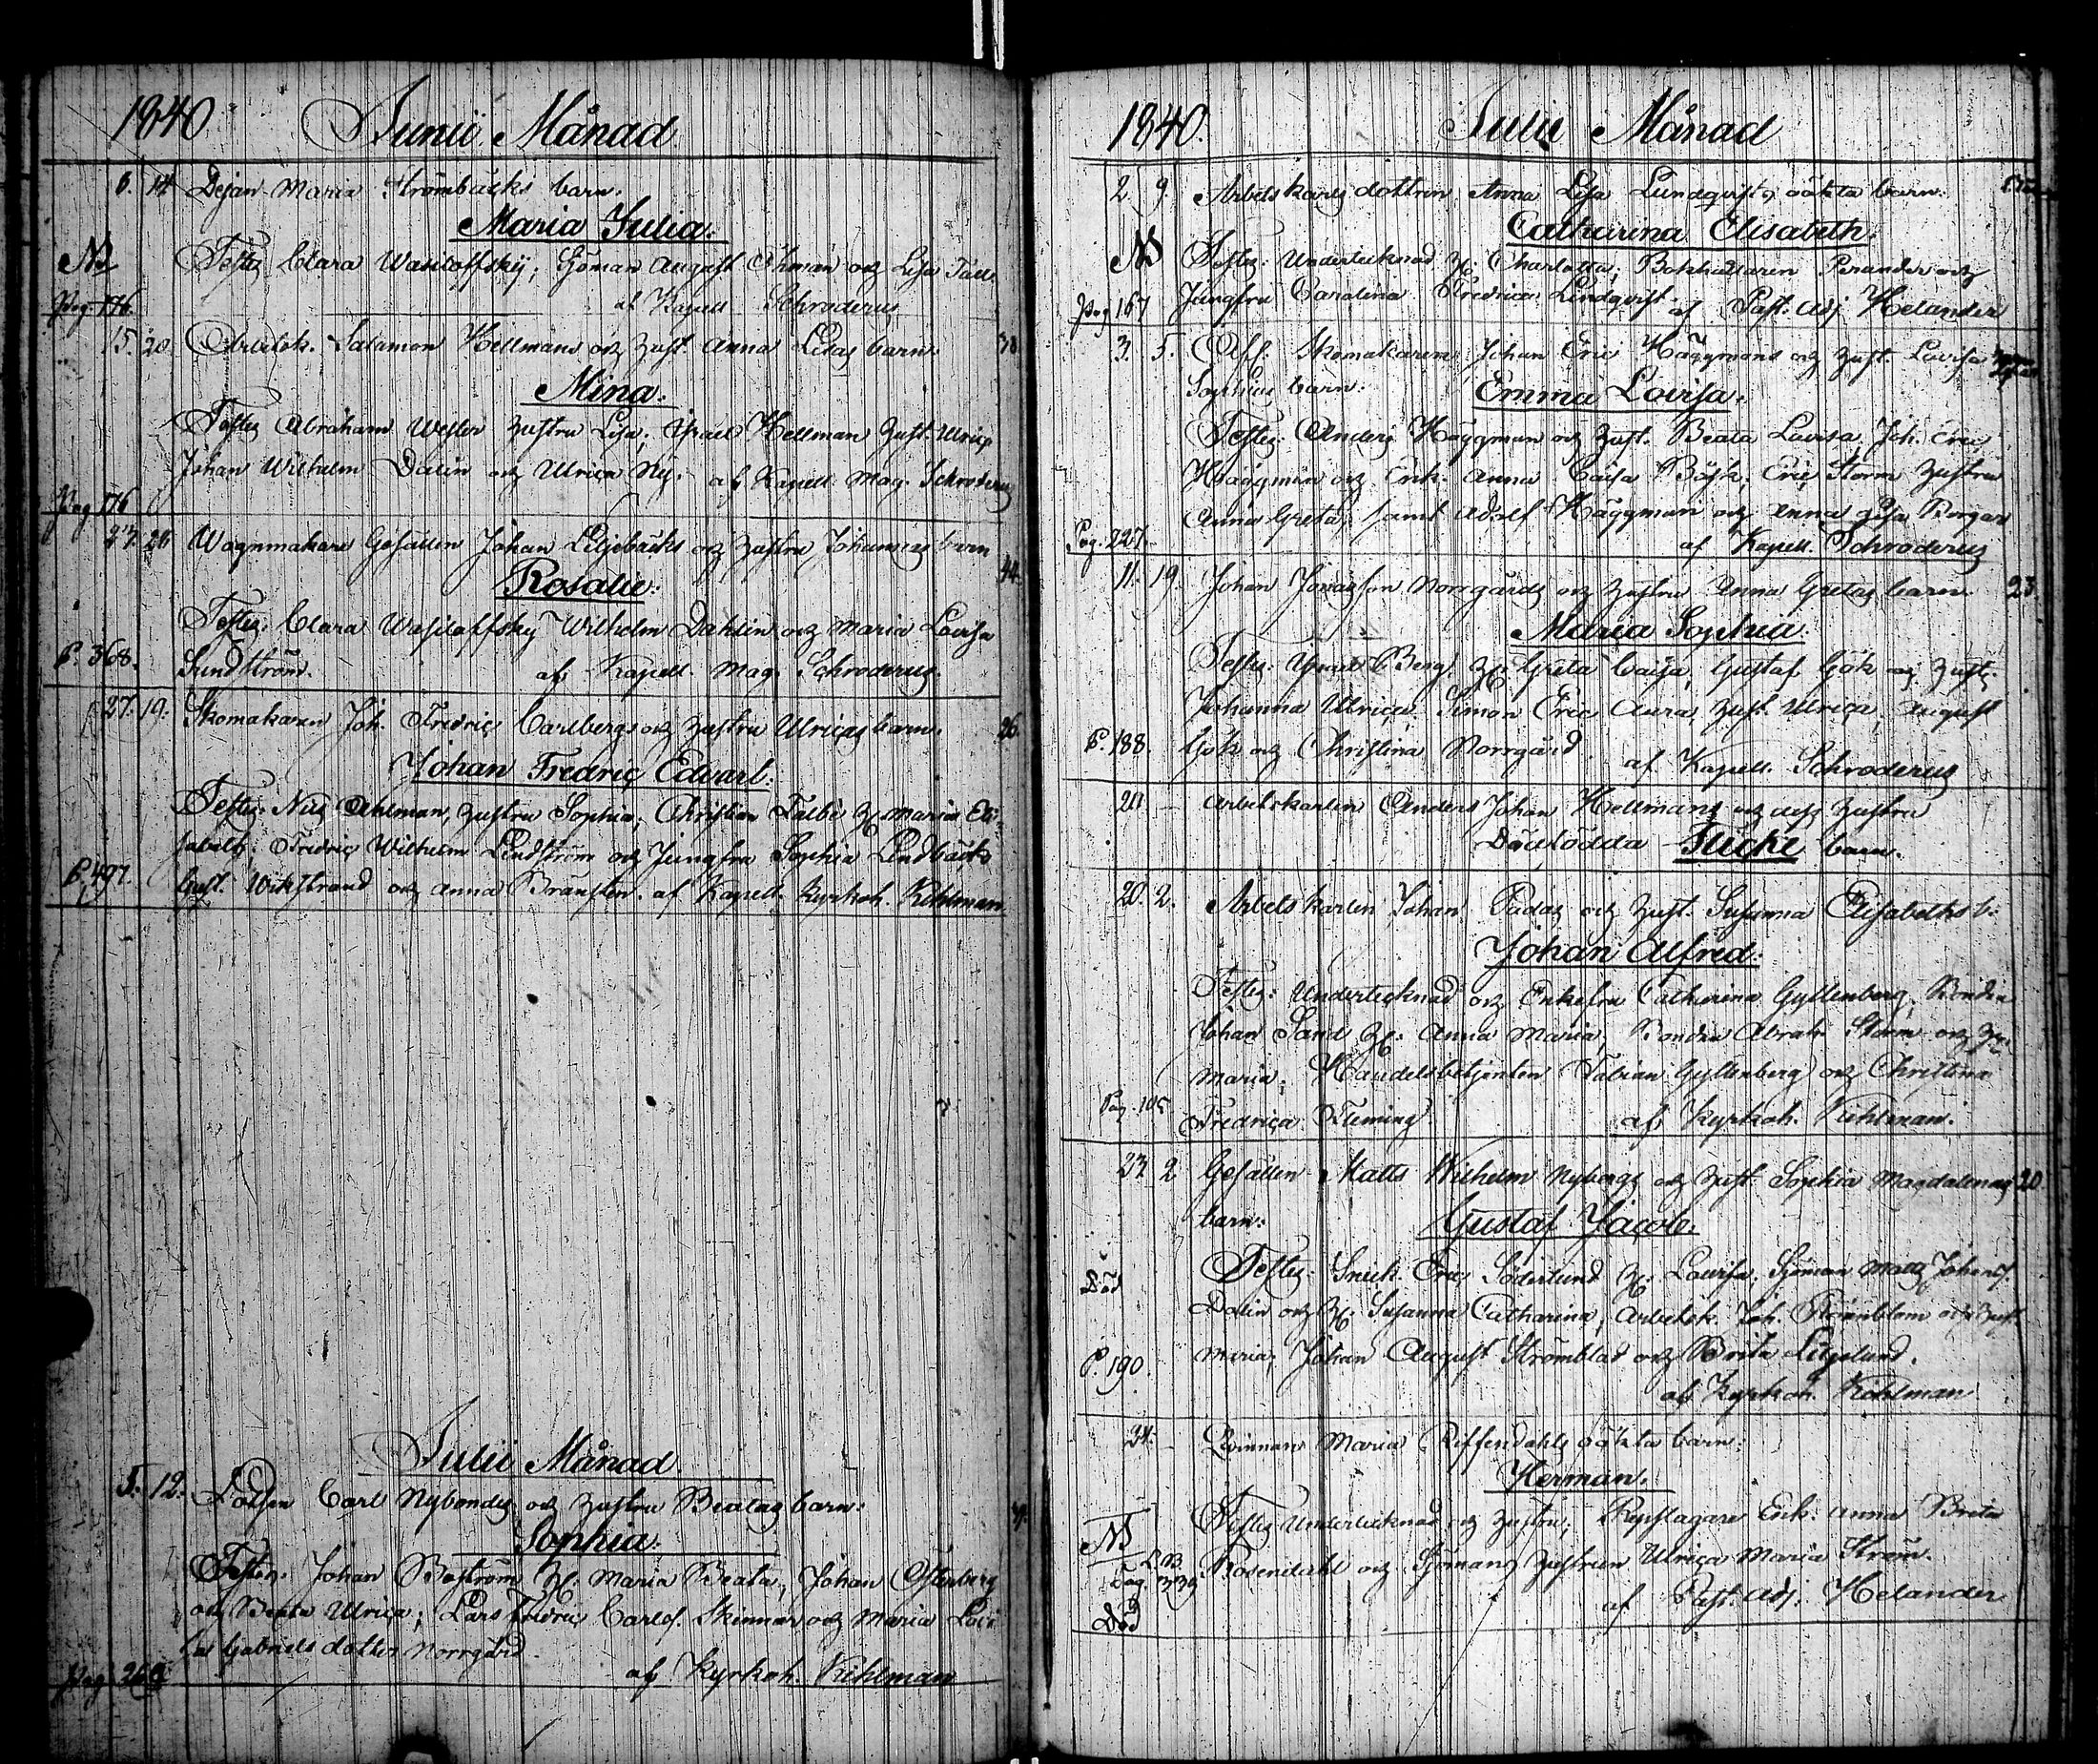 1840 Junii Månad
6. 14 Dejan Maria Strömbäcks barn.
Maria Julia.
NB Testes Clara Wasiloffskij; Sjöman August Öhman och Lisa
Pag 176 af Kapell Schroderus
15. 20. Arbetsk. Salamon Hellmans och hust. Anna Lisas barn.
Mina.
Testes Abraham Wester hustru Lisa; Israel Hellman hust. Ulrica
Johan Wilhelm Dalin och Ulrica Nÿ. af Kapell. Mag. Schroderus
Pag 176
Wagnmakare Gesällen Johan Liljebäcks och hustru Johannas barn 44.
Rosalie.
Testes. Clara Wasiloffsky Wilhelm Dahlin och Maria Lovisa
P. 368. Sundström. af Kapell. Mag. Schroderus.
27. 19. Skomakaren Joh. Fredric Carlbergs och hustru Ulricas barn. 26.
Johan Fredric Edvart.
Testes. Nils Ahlman, hustru Sophia; Christian Falbe H. Maria Eli-
sabeth; Fredric Wilhelm Lindström och Jungfru Sophia Lindbäck
P. 497. Gust. Wikstrand och Anna Bränsten. af Kapell. Kyrkoh. Kihlman
Julii Månad.
5. 12. Lotsen Carl Nybondes och hustru Beatas barn.
Sophia.
Testes. Johan Boström H. Maria Beata; Johan Österberg
och Beata Ulrica; Lars Fredric Carls. Skinnar och Maria Lovi
sa Gabriels dotter Norrgård.
Pag af Kyrkoh. Kihlman
1840. Julii Månad
2 9. Arbetskarls dottren Anna Lisa Lundqvists oäkta barn.
Catharina Elisabeth.
NB Testes: Undertecknad H. Charlotta; Bokhållaren Perander och
Pag 167 Jungfru Carolina Fredrica Lindqvist. af Past. Adj. Helander
3. 5. Skomakaren Johan Eric Häggmans och hust. Lovisa
Sophias barn. Emma Lovisa.
Testes: Anders Häggman och hust. Beata Lovisa, Joh. Eric
Häggman och Enk. Anna Caisa Bäsk; Eric Storm hustru
Anna Greta; samt Adolf Häggman och Anna Lisa
Pag. 227. af Kapell. Schroderus
11. 19. Johan Jonasson Norrgårds och hustru Anna Gretas barn. 23.
Maria Sophia.
Testes. Israel Berg H. Greta Caisa, Gustaf Gök och hust.
Johanna Ulrica. Simon Eric Aura, hust. Ulrica, August
P. 188. Gök och Christina Norrgård. af Kapell. Schroderus
20 – Arbetskarlen Anders Johan Hellmans och dess hustru
Dödfödda Flicke barn.
20. 2. Arbetskarlen Johan Padas och hust. Susanna Elisabeths b.
Johan Alfred.
Testes: Undertecknad och Enkefru Catharina Gyllenberg, Bonden
Johan Sand H. Anna Maria, Bonden Abrah. Storm och
Maria; Handelsbetjenten Fabian Gyllenberg och Christina
Pag. 105 Fredrica Fleming. af Kyrkoh. Kihlman.
23 2 Gesällen Matts Wilhelm Nybergs och hust. Sophia Magdalenas 20
barn. Gustaf Jacob.
Testes. Snick. Eric Söderlund H. Lovisa, Sjöman Matts Johans.
Död Dalin och H. Susanna Catharina, Arbetsk. Joh. och hust.
P. 190. Maria, Johan August Strömblad och Brita Liljelund.
af Kyrkoh. Kihlman
Qvinnan Maria Riffendahls oäkta barn.
Herman.
NB Testes Undertecknad och hustru; Repslagare Enk. Anna Brita
Rosendahl och Sjömans hustrun Ulrica Maria Ström.
Död af Past. Adj. Helander